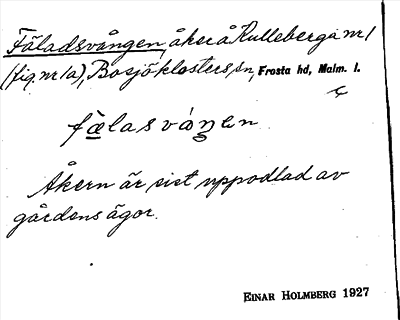 Fäladsvången, åker å Kulleberga nr 1
(fig. nr 1a), Bosjöklosters sn, Frosta hd, Malm. l.
fælasváŋen
Åkern är sist uppodlad av
gårdens ägor.
EINAR HOLMBERG 1927